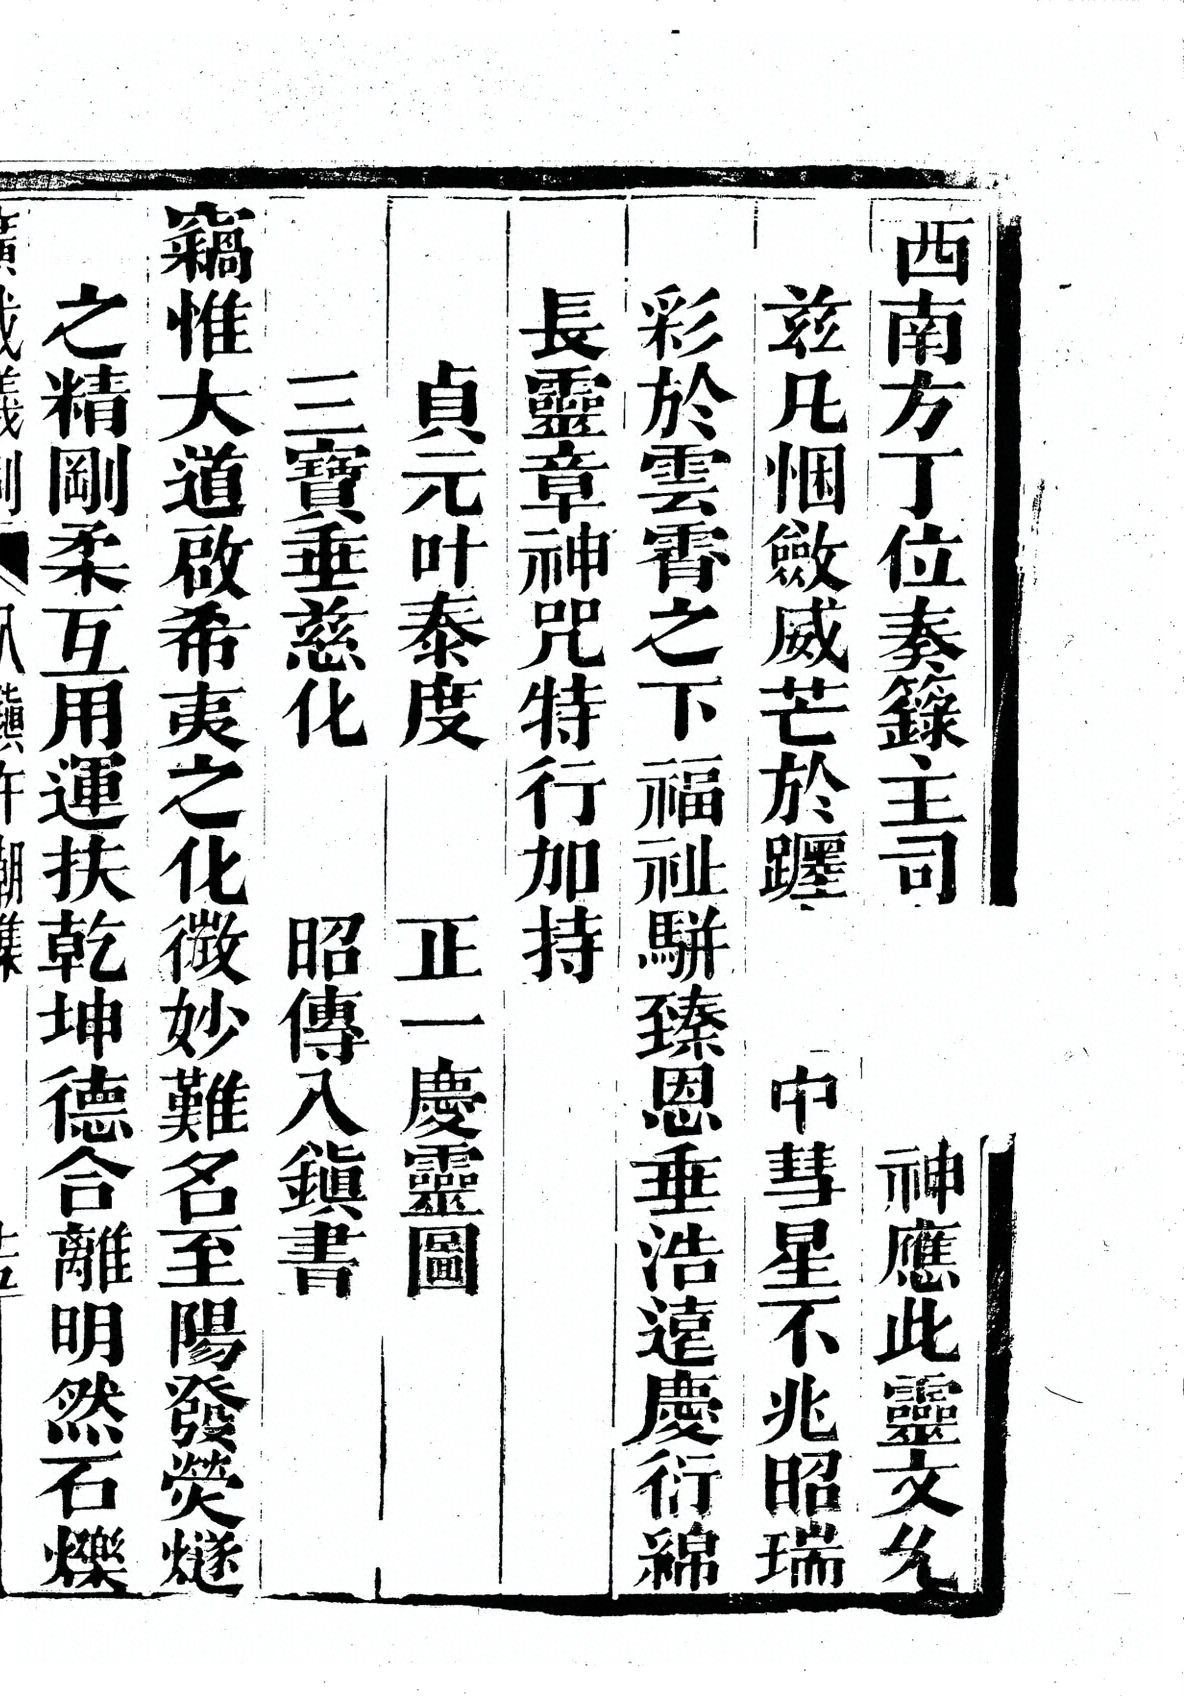 西南方丁位奏籙主司 神應此靈文
茲凡悃斂威芒於躔 中彗星不兆昭瑞
彩於雲霄之下福祉駢臻恩垂浩遠慶衍綿
長靈章神咒特行加持
貞元叶泰度 正一慶靈圖
三寶垂慈化 昭傳入鎮書
竊惟大道啟希夷之化微妙難名至陽發熒燧
之精剛柔互用運扶乾坤德合離明然石爍
廣成儀制